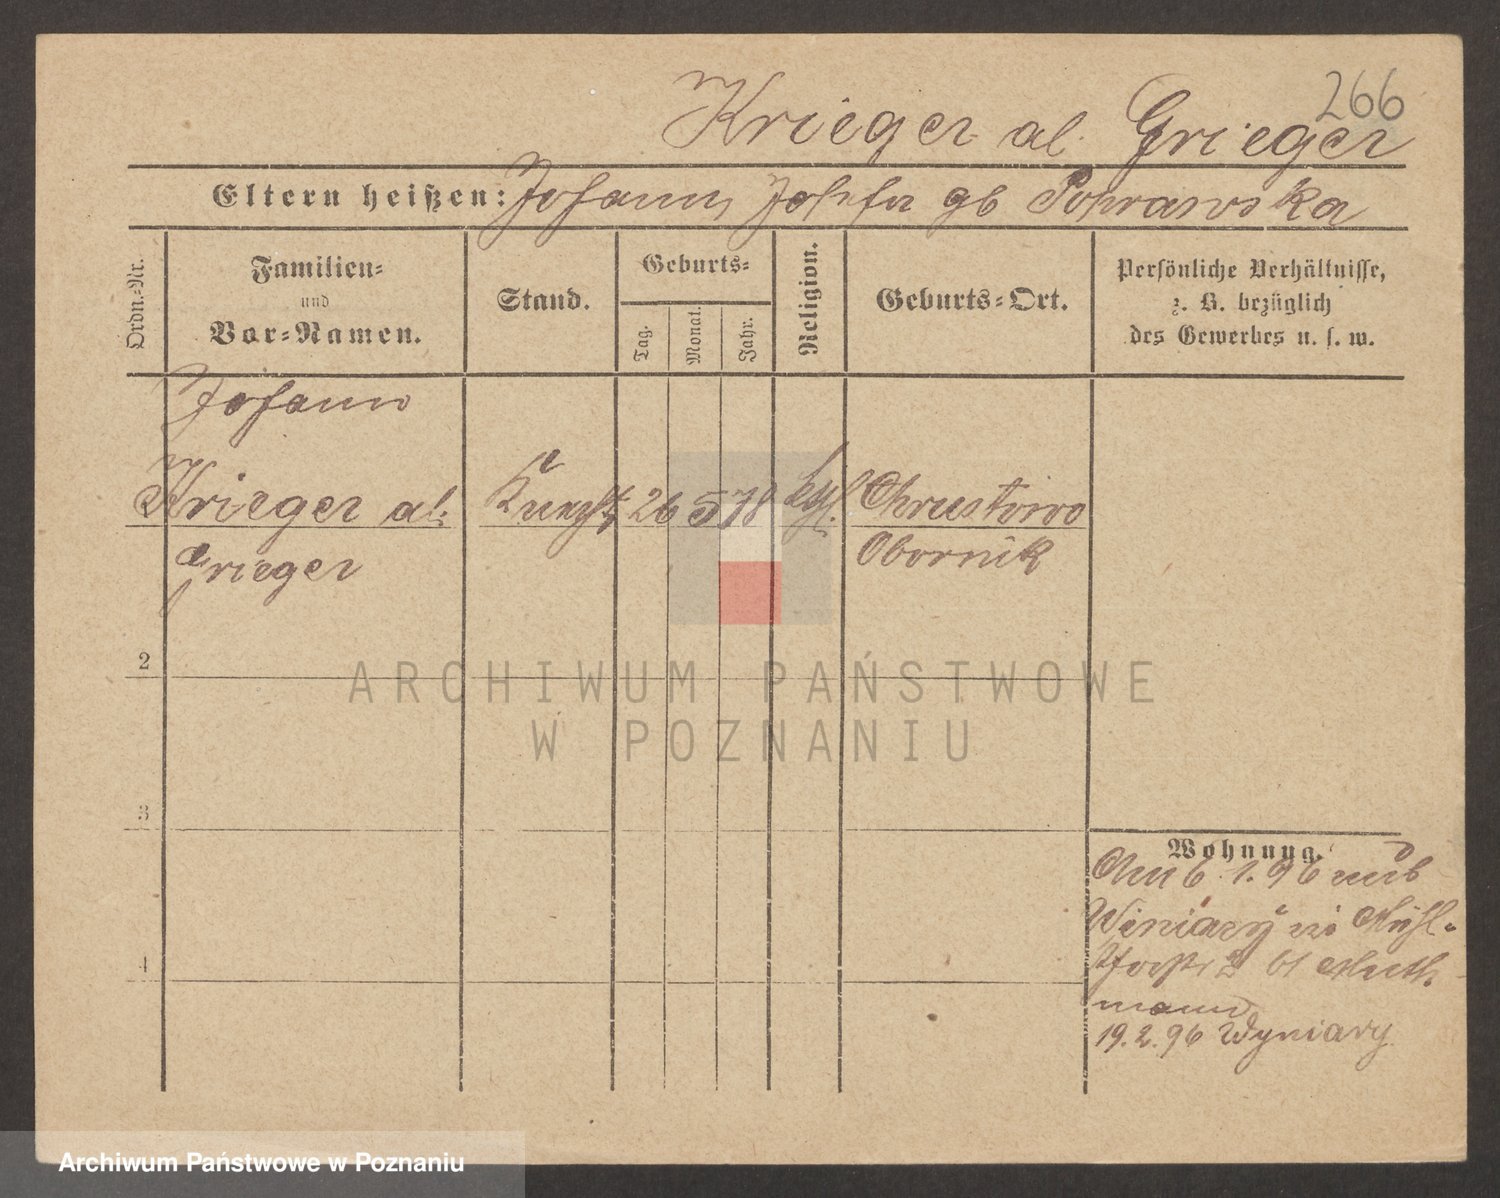 266
Krieger al. Grieger
Eltern heißen: Johann, Josefa gb Poprawska
Ordn.-Nr.
Familien-
und
Vor-Namen.
Stand.
Geburts-
Tag.
Monat.
Jahr.
Religion.
Geburts-Ort.
Persönliche Verhältnisse,
z. B. bezüglich
des Gewerbes u. s. w.
Johann
Krieger al. Knecht 26 5 78 kath. Chrustowo
Grieger Obornik
2
3
4
Wohnung.
6. 1. 96 aus
Winiary in Mühl-
19. 2. 96 Wyniary
ARCHIWUM PAŃSTWOWE
W POZNANIU
Archiwum Państwowe w Poznaniu